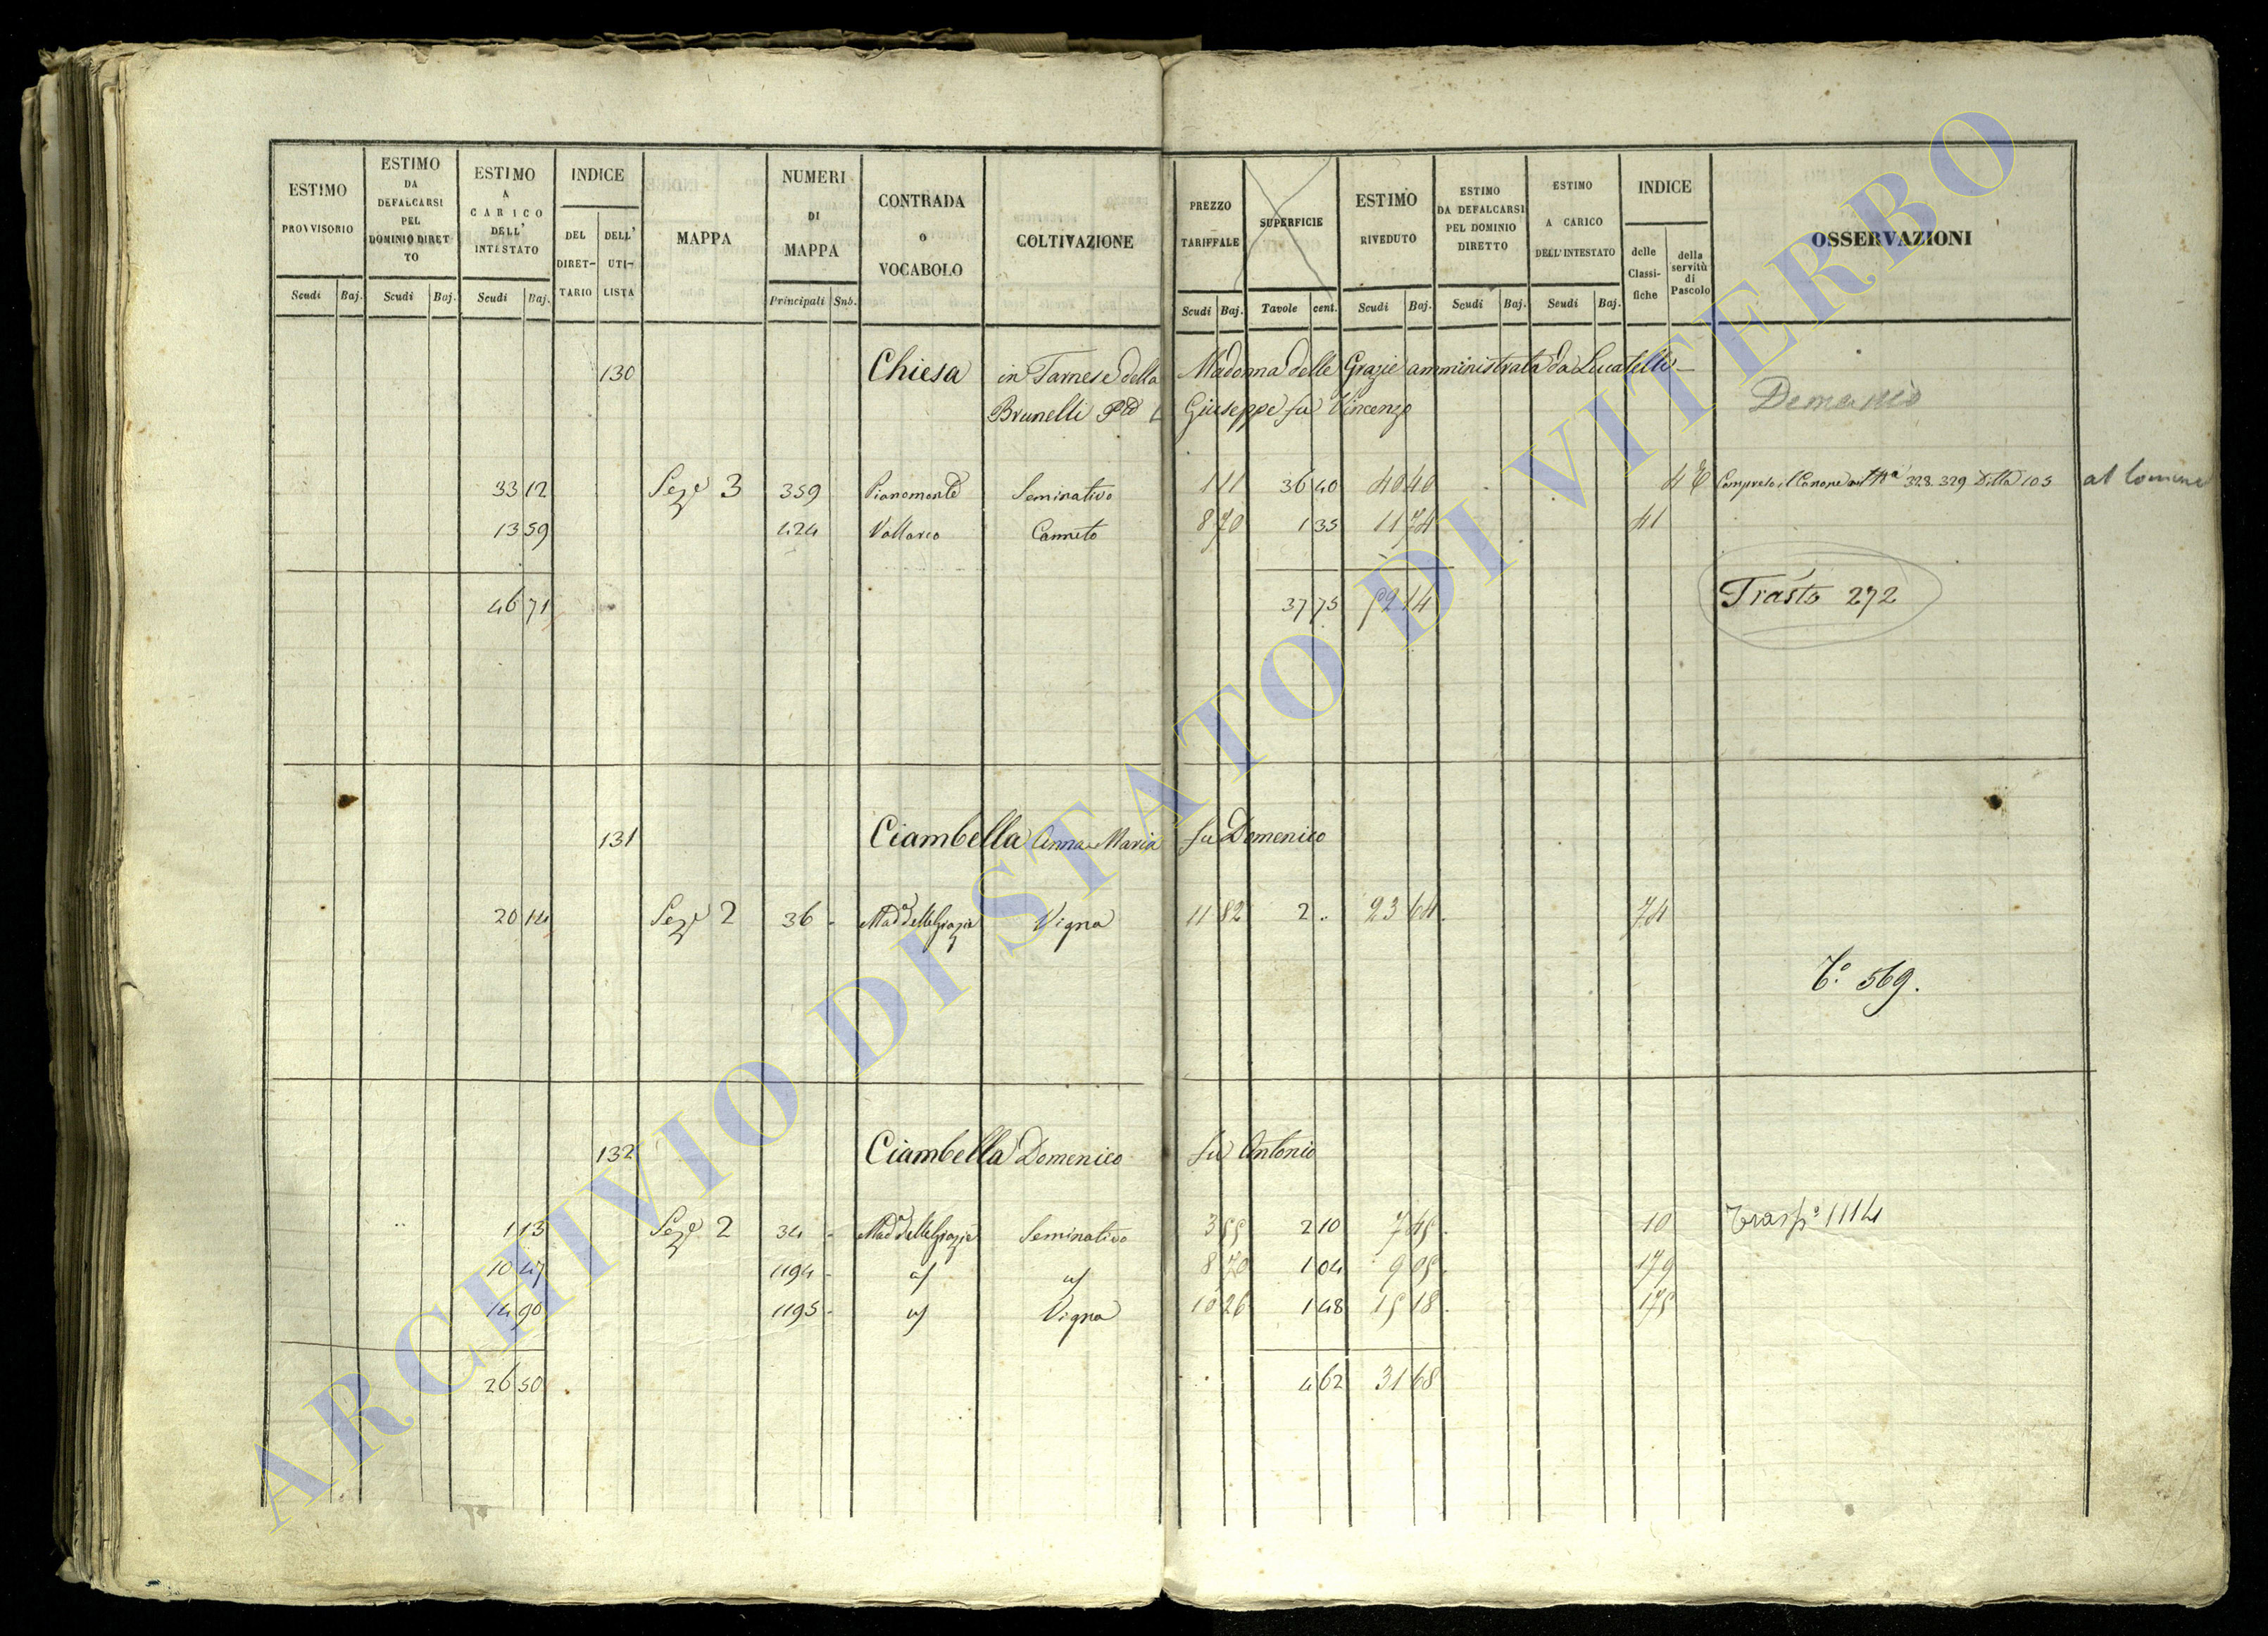 ESTIMO PROVVISORIO Scudi Baj.
ESTIMO DA DEFALCARSI PEL DOMINIO DIRETTO Scudi Baj.
ESTIMO A CARICO DELL' INTESTATO Scudi Baj.
INDICE DEL DIRET-TARIO DELL' UTI-LISTA
MAPPA
NUMERI DI MAPPA Principali Sub.
CONTRADA o VOCABOLO
COLTIVAZIONE
PREZZO TARIFFALE Scudi Baj.
SUPERFICIE Tavole cent.
ESTIMO RIVEDUTO Scudi Baj.
ESTIMO DA DEFALCARSI PEL DOMINIO DIRETTO Scudi Baj.
ESTIMO A CARICO DELL'INTESTATO Scudi Baj.
INDICE delle Classi-fiche della servitù di Pascolo
OSSERVAZIONI
130 Chiesa in Farnese della Madonna delle Grazie amministrata da Lucatelli
Brunelli Giuseppe fu Vincenzo
Demanio
33 12 Sez.e 3 359 Pianomonte Seminativo 1 11 36 40 40 40 4 Compreso il Canone 328. 329 Ditta 105 al Comune
13 59 424 Vallarco Canneto 8 70 1 35 11 74 41
46 71 37 75 52 14
Trasto 272
131 Ciambella Anna Maria fu Domenico
20 14 Sez.e 2 36 Mad.a delle Grazie Vigna 11 82 2 . 23 64 74
T.o 569.
132 Ciambella Domenico fu Antonio
1 13 Sez.e 2 34 Mad.a delle Grazie Seminativo 3 55 2 10 7 45 10 Trasp.o 1114
10 47 1194 8 70 1 04 9 05 179
14 90 1195 Vigna 10 26 1 48 15 18 175
26 50 4 62 31 68
ARCHIVIO DI STATO DI VITERBO